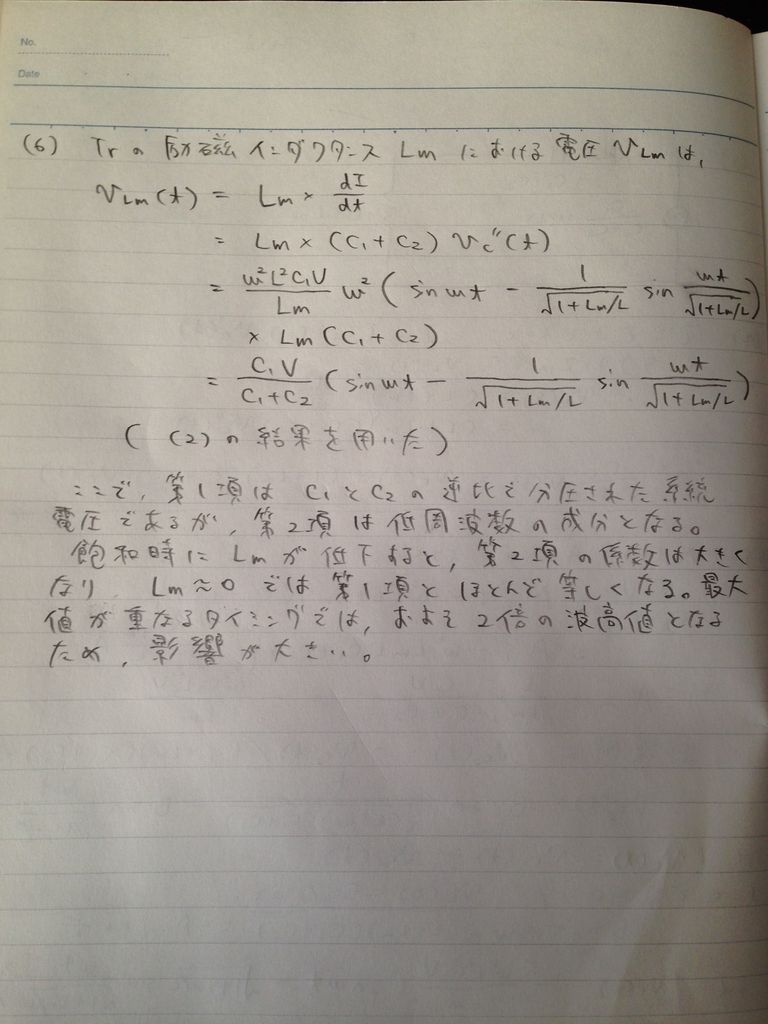 No.
Date
(6) Trの励磁インダクタンス Lm における電圧 VLm は,
VLm(t) = Lm × dI/dt
= Lm × (C1 + C2) Vc''(t)
= ω²L²C1V/Lm ω² ( sin ωt - 1/√(1+Lm/L) sin ωt/√(1+Lm/L) )
× Lm (C1 + C2)
= C1V/(C1+C2) ( sin ωt - 1/√(1+Lm/L) sin ωt/√(1+Lm/L) )
( (2)の結果を用いた)
ここで, 第1項は C1とC2の逆比で分圧された系統
電圧であるが, 第2項は低周波数の成分となる。
飽和時に Lmが低下すると, 第2項の係数は大きく
なり, Lm≈0 では第1項とほとんど等しくなる。最大
値が重なるタイミングでは, およそ2倍の波高値となる
ため, 影響が大きい。